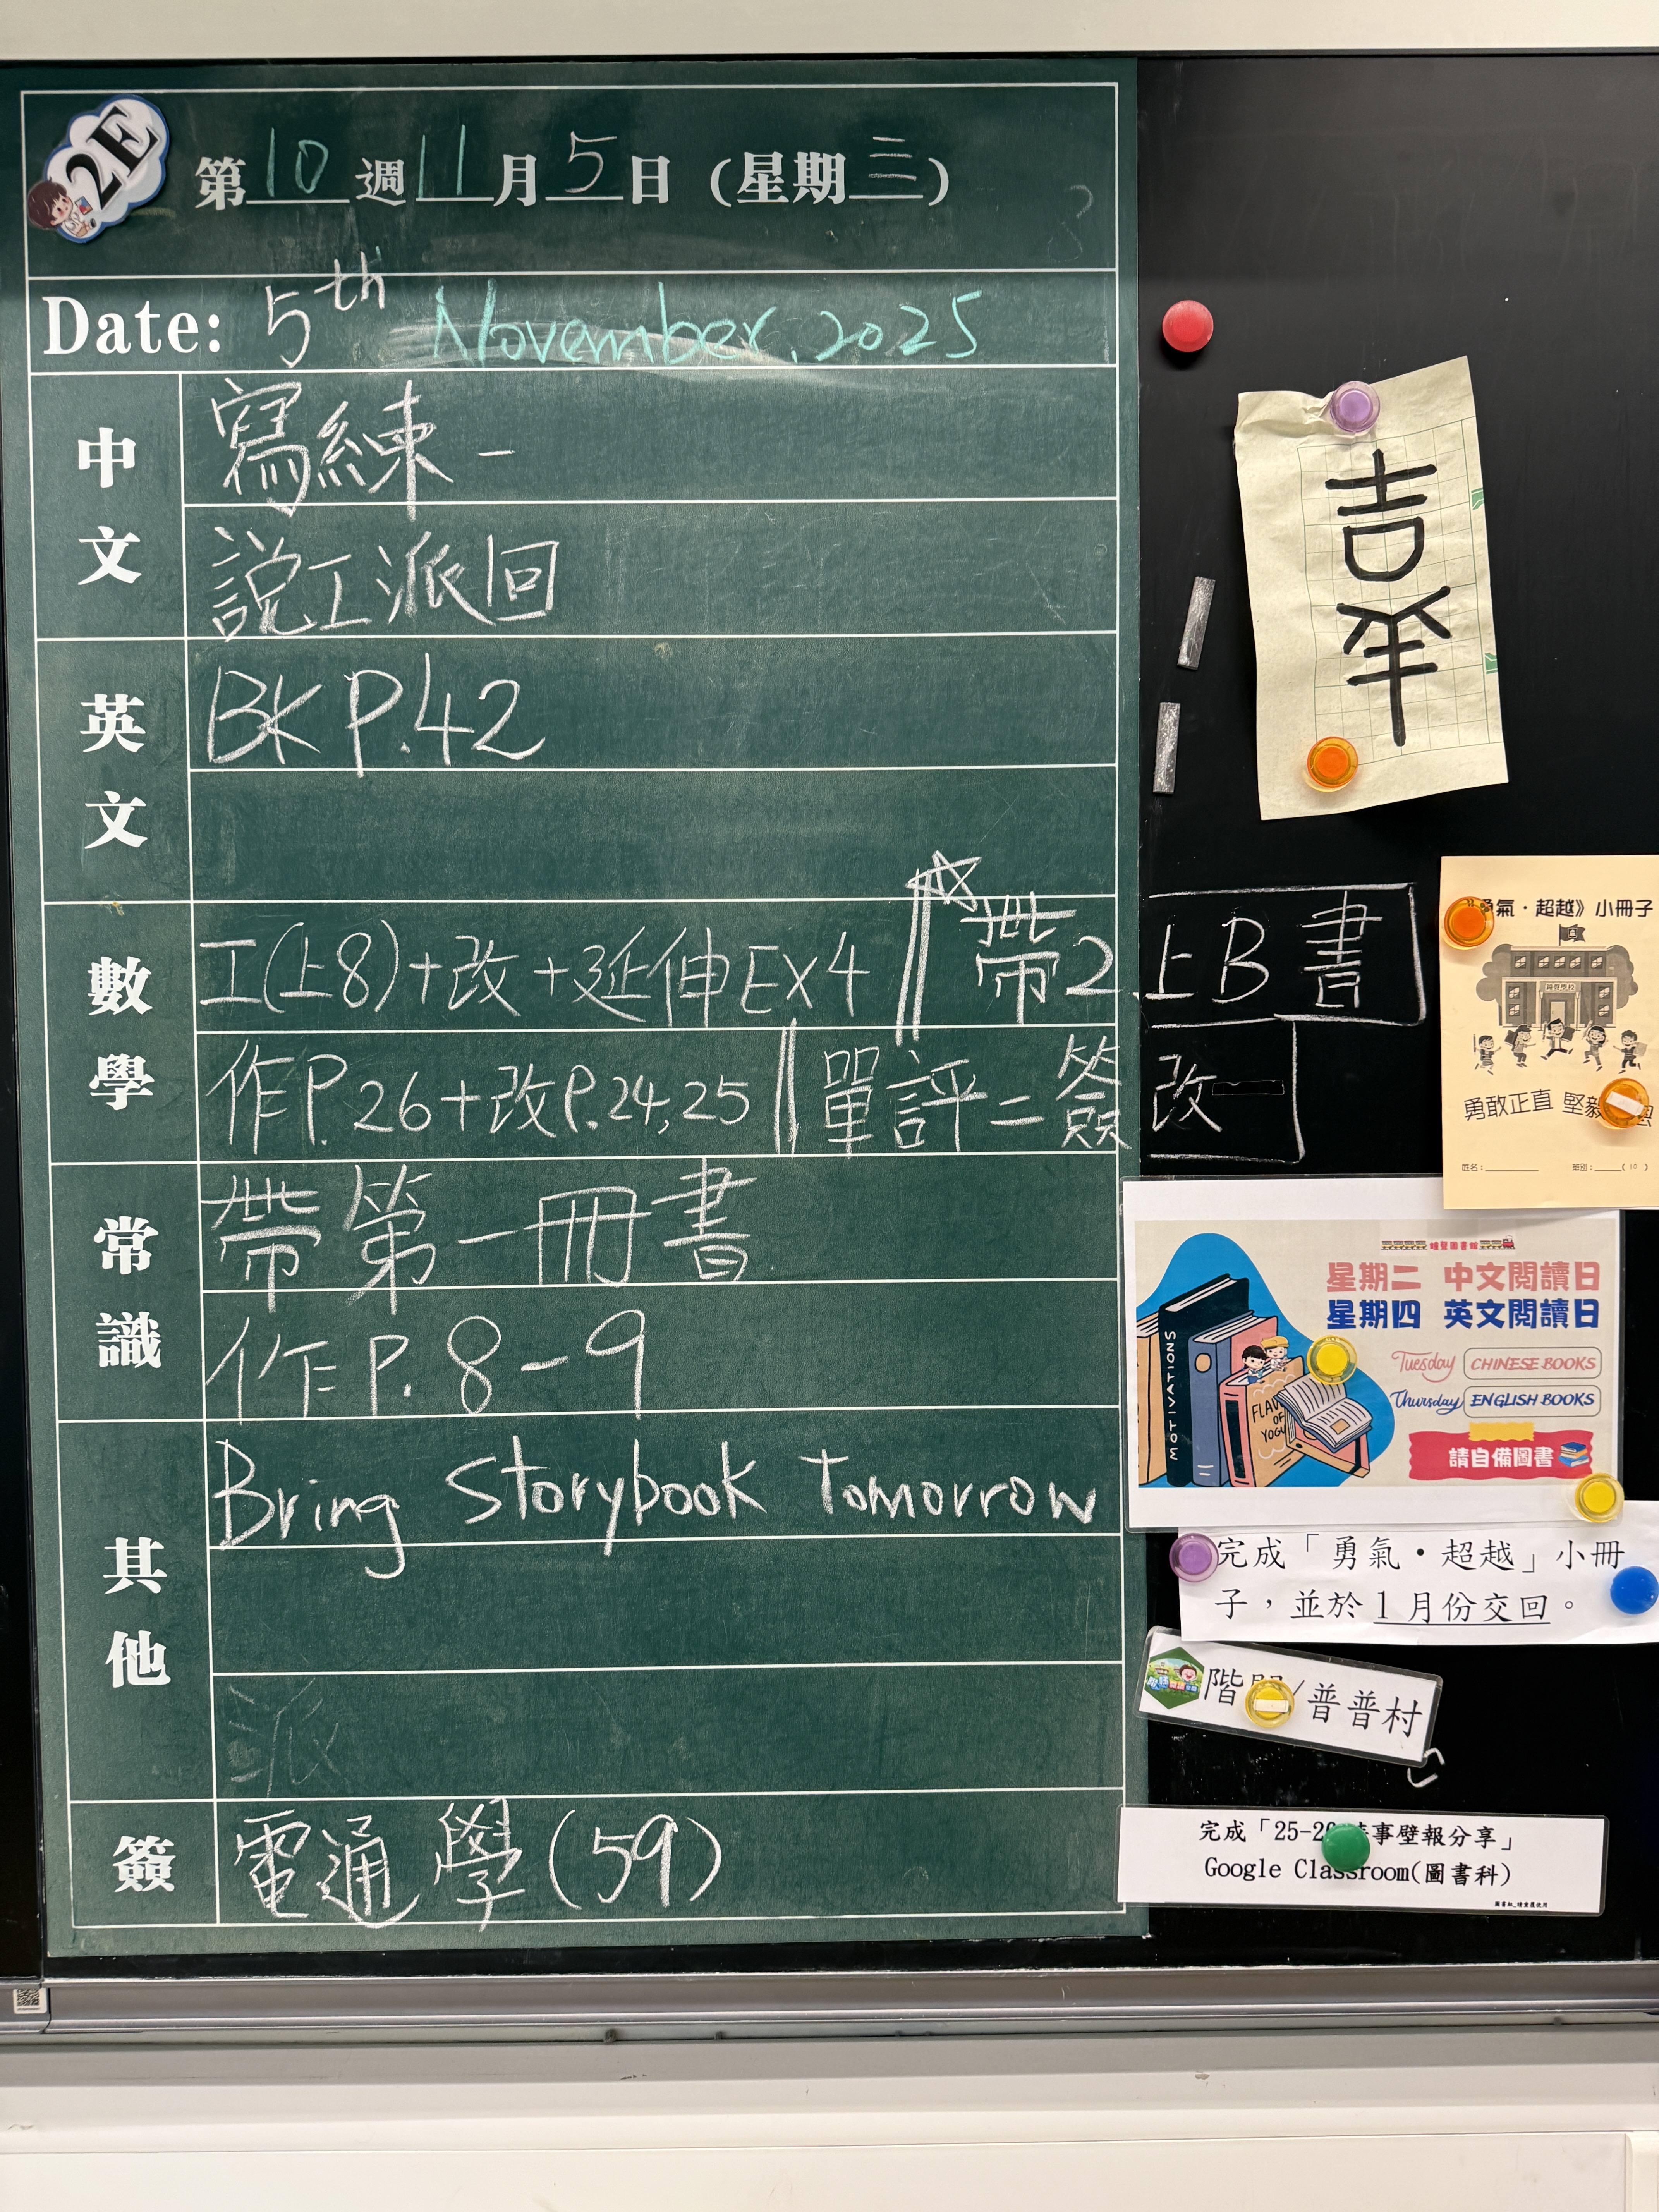 2E
第10週11月5日(星期三)
Date: 5th November, 2025
中文
寫練一
說工派回
英文
BK P.42
數學
工(上8)+改+延伸EX4 帶2上B書
作P.26+改P.24,25 單評二簽改
常識
帶第一冊書
作P.8-9
其他
Bring Storybook Tomorrow
派
簽
電通學(59)
吉祥
勇氣·超越》小冊子
勇敢正直 堅毅
姓名:
班別: (10)
星期二 中文閱讀日
星期四 英文閱讀日
Tuesday CHINESE BOOKS
Thursday ENGLISH BOOKS
請自備圖書
MOTIVATIONS
OF
完成「勇氣·超越」小冊
子,並於1月份交回。
階 /普普村
完成「25-2 事壁報分享」
Google Classroom(圖書科)